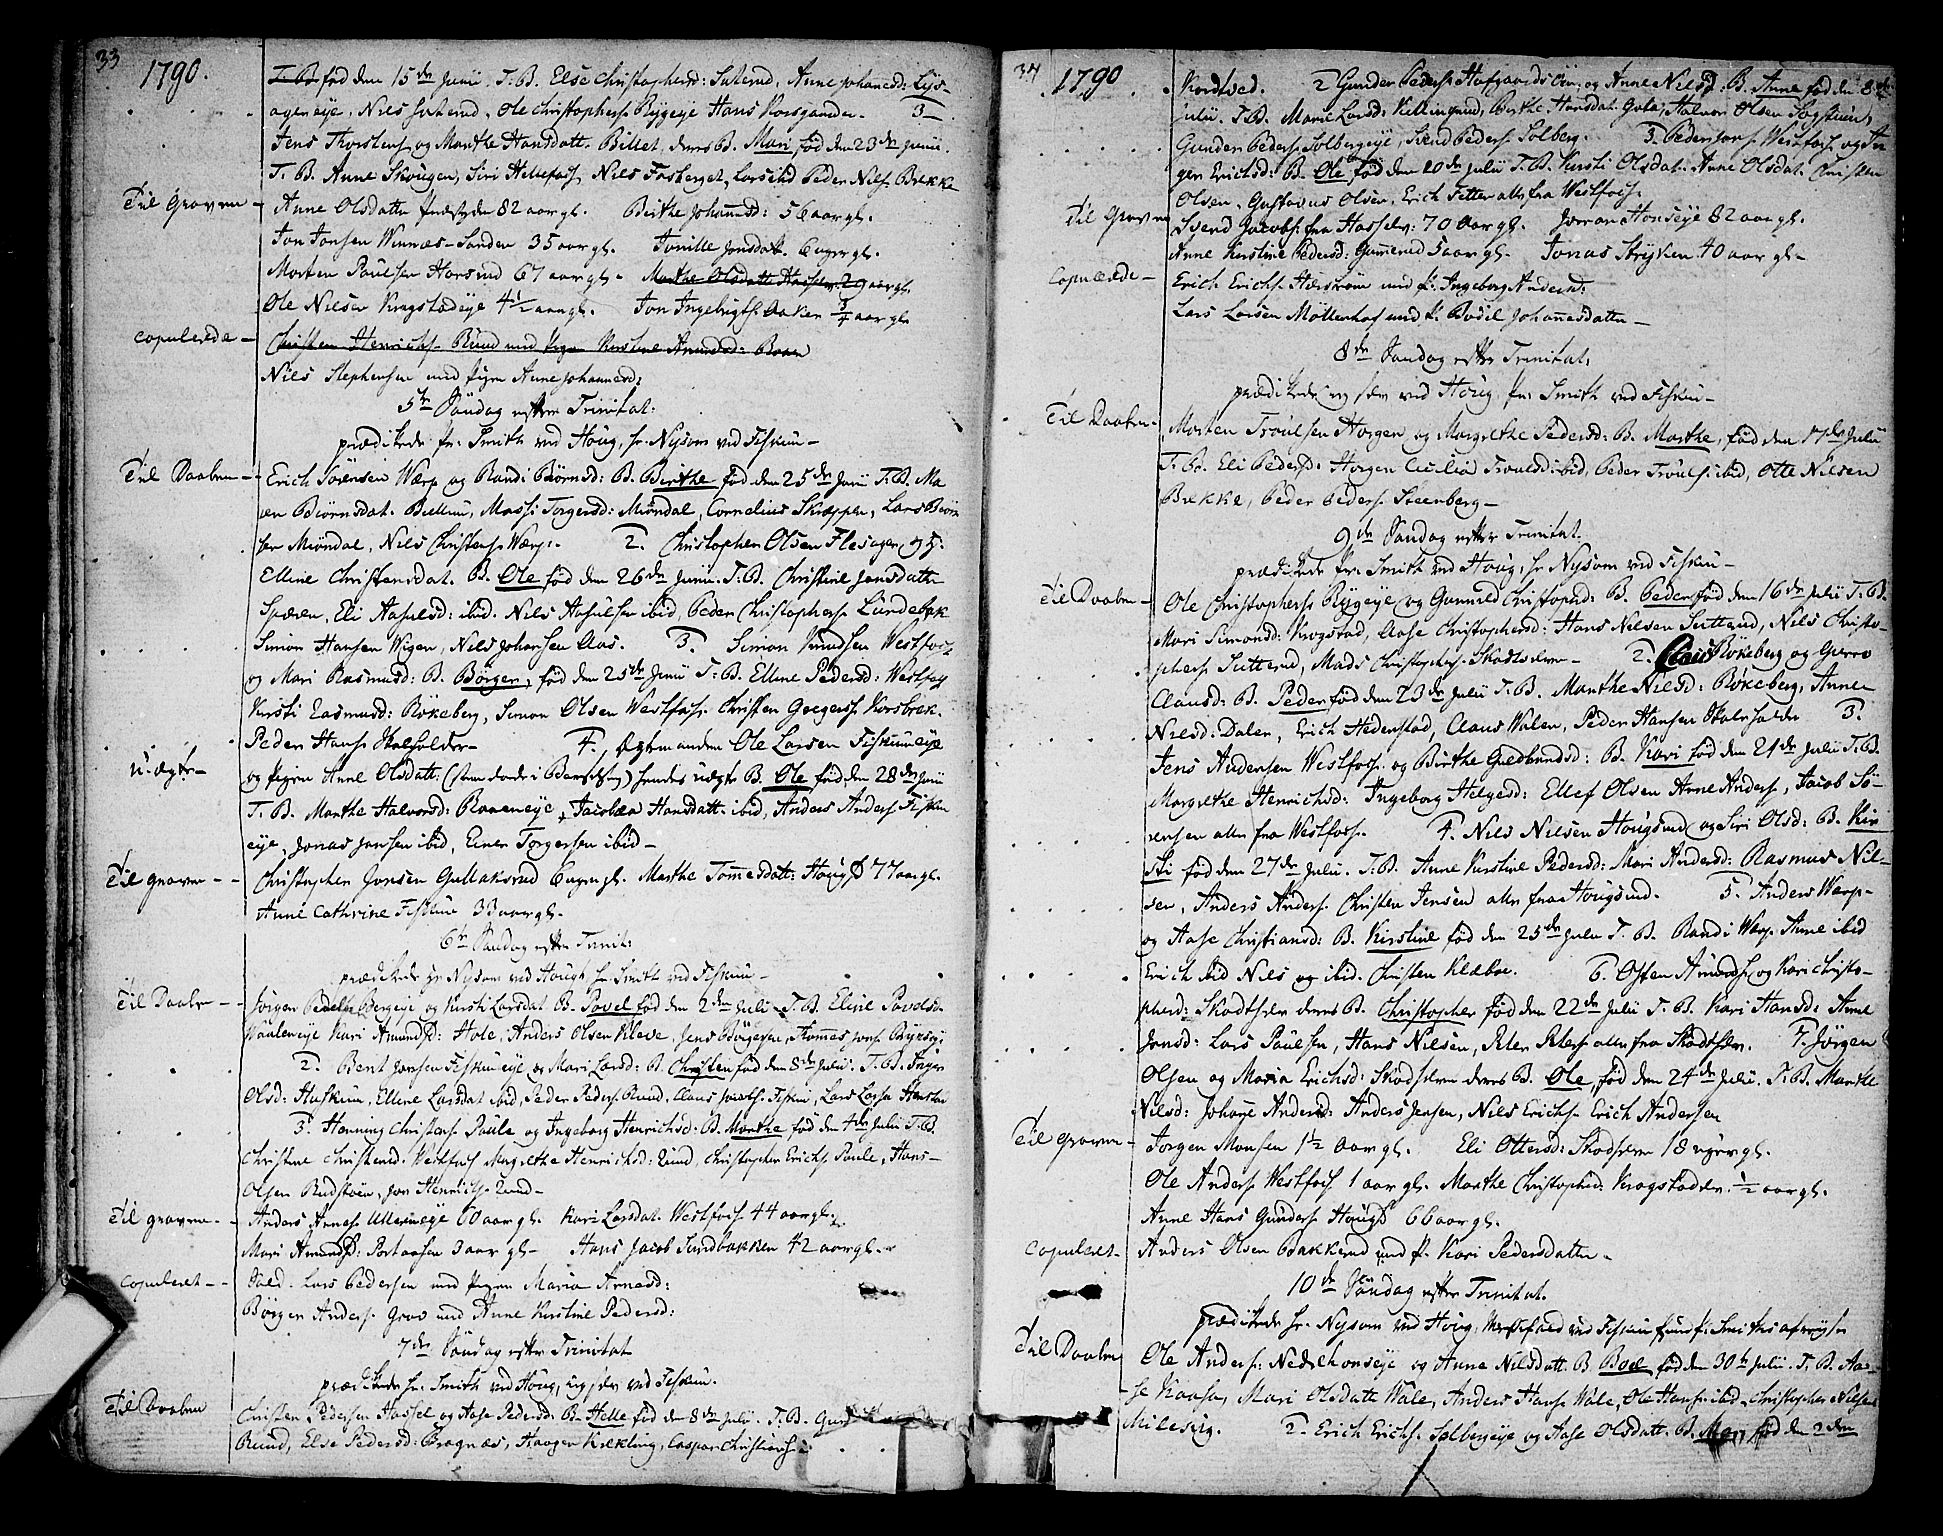 33
1790.
T. B. fød den 15de Junii. T. B. Else Christophersd: Suterud, Anne Johannesd: Lys-
ager eye, Nils Suterud, Ole Christophers. Rygeye Hans Korsgaarden. 3
Jens Thorstens. og Marthe Hansdatt. Billet, deres B. Mari, fød den 23de Junii.
T. B. Anne Skougen, Siri Hellefoss, Nils Fosberget, Lars ibid Peder Nils. Bekke
Til Graven - Anne Olsdatter 82 aar gl. Birthe Johannsd: 56 aar gl.
Jon Jonsen Winnæs-Sanden 35 aar gl. Jonille Jonsdatt. 6 uger gl.
Morten Paulsen Horsrud 67 aar gl. - Marthe Olsdatt 29 aar gl.
Ole Nilsen Krogstadeye 4 1/2 aar gl. Jon Ingebrigts. Aaker 3/4 aar gl.
copulerede - Christen Henrichs. Ruud med Pigen Kirstine Amundsd: Boan
Nils Stephensen med Pigen Anne Johannesd:
5te Søndag efter Trinitat:
prædikede Hr. Smith ved Houg, Hr. Nysom ved Fiskum -
Til Daaben - Erich Sørensen Wærp og Randi Biørnsd: B. Birthe fød den 25de Junii T. B. Ma
ren Biørnsdat. Massi Torgersd: Miøndal, Cornelius Skreppen, Lars Biørn
sen Miøndal, Nils Christens. Wærp. 2. Christopher Olsen Flesager, og
Elline Christensdat. B. Ole fød den 26de Junii. T. B. Christine Jensdatte
Spæren, Eli Aasulsd: ibid. Nils Aasulsen ibid Peder Christophers. Lundebak
Simon Hansen Wigen, Nils Johansen Aas. 3. Simon Knudsen Westfoss
og Mari Rasmusd: B. Børger, fød den 25de Junii T. B. Elline Pedersd: Westfoss
Kirsti Rasmusd: Røkeberg, Simon Olsen Westfoss. Christen Gregers. Korsbrek.
Peder Hans. Skalholder - 4., Ægtemanden Ole Larsen Fiskumeye
u-ægte - og Pigen Anne Olsdatt: hendes uægte B. Ole fød den 28de Junii
T. B. Marthe Halvorsd: Raaeneye, Jacobæa Hansdatt. ibid, Anders Anders. Fiskum
eye, Jonas Jonsen ibid, Einer Torgersen ibid -
Til graven - - Christopher Jonsen Gullaksrud 6 uger gl. Marthe Tommesdatt: Houg 77 aar gl.
Anne Cathrine Fiskum 33 aar gl.
6te Søndag efter Trinit:
prædikede Hr Nysom ved Hougs Hr. Smith ved Fiskum -
Til Daaben - - Jørgen Bergeye og Kirsti Larsdat B. Povel fød den 2den Julii - T. B. Elsie Povelsd.
Kari Amunds: Hole, Anders Olsen Kleve, Jens Børgesen, Tommes Jons.
2. Bent Jonsen Fiskumeye og Mari Larsd: B. Christen fød den 8de Julii. T. B. Inger
Olsd: Huskum, Elline Larsdat ibid, Peder Peders. Ruud, Claus Jacobs. Fiskum, Lars Larss.
3. Henning Christens. Paule og Ingeborg Henrichsd: B. Marthe fød den 4de Julii T. B.
Christine Christensd. Westfoss Margrethe Henrichsd: Ruud, Christopher Erichs. Paule, Hans
Olsen Rudstøen, Jon Henrichs. Ruud -
Til graven - - Anders Arnes. Ullereneye 60 aar gl. Kari Larsdat. Westfoss. 44 aar gl.
Mari Amunds: Portaasen 3 aar gl - Hans Jacob Sundbakken 42 aar gl. -
copuleret - - Lars Pedersen med Pigen Maria Arnesd:
Børger Anders. Grov med Anne Kirstine Pedersd:
7de Søndag efter Trinitat
prædikede Hr. Smith ved Houg, og ved Fiskum.
Til Daaben Christen Pedersen Hassel og Aase Pedersd: B. Helle fød den 8de Julii. T. B.
Ruud, Else Pedersd: Bragnæs, Haagen Kiækling, Casper Christians.
34
1790
Nordtved. 2 Gunder Peders. Hafgaards Øen, og Anne Nilsd. B. Anne fød den 8de
Julii. T. B. Marie Larsd: Killingrud, Birthe Hansdat. Gule, Halvor Olsen Sogstuen,
Gunder Peders. Solbergeye, Svend Peders. Solberg. 3. Peder Jons. Westfoss. og In
ger Erichsd: B. Ole fød den 20de Julii T. B. Kirsti Olsdat. Anne Olsdat. Christen
Olsen, Gustavus Olsen, Erich Fetter alle fra Westfoss.
Til Graven Svend Jacobs. fra Hasselv. 70 aar gl. Joran Honseye 82 aar gl.
Anne Kirstine Pedersd: Gunnerud 5 aar gl. Jonas Stryken 40 aar gl -
Copulerede - Erich Erichs. Hierstrøm med P. Ingeborg Andersd:
Lars Larsen Møllenhof med P. Bodil Johannesdatter -
8de Søndag efter Trinitat.
prædikede ved Houg Hr. Smith ved Fiskum -
Til Daaben - Morten Troulsen Horgen og Margrethe Pedersd: B. Marthe, fød den 17de Julii
T. B. Eli Pedersd: Horgen Cicilia Troulsd: ibid, Peder Trouls. ibid, Otte Nilsen
Bekke, Peder Peders. Steenberg -
9de Søndag efter Trinitat.
prædikede Hr. Smith ved Houg, Hr Nysom ved Fiskum -
Til Daaben - Ole Christophers. Rygeye og Gunnild Christophd: B. Peder fød den 16de Julii T. B.
Mari Simonsd: Krogstad, Aase Christophersd: Hans Nilsen Sutterud, Nils Christo-
phers. Sutterud, Mads Christophers. Skodtselven - 2. Claus Røkeberg og Gurro
Clausd: B. Peder fød den 23de Julii T. B. Marthe Nilsd: Røkeberg, Anne
Nilsd: Dalen, Erich Hedenstad, Claus Walen, Peder Hansen Skalholder 3.
Jens Andersen Westfoss. og Birthe Guldbrandsd: B. Kari fød den 21de Julii T. B.
Margrethe Henrichsd: Ingeborg Helgesd: Ellef Olsen Arne Anders, Jacob Sø-
rensen alle fra Westfoss. 4. Nils Nilsen Hougsrud og Siri Olsd: B. Kir-
sti fød den 27de Julii. T. B. Anne Kirstine Pedersd: Mari Andersd: Rasmus Nil-
sen, Anders Anders. Christen Jensen alle fra Hougsrud. 5. Anders Wærp-
og Aase Christiansd: B. Kirstine fød den 25de Julii T. B. Randi Wærp Anne ibid
Erich ibid Nils og ibid. Christen Klæboe. 6. Osten Amunds. og Kari Christo-
phersd: Skodtselv deres B. Christopher fød den 22de Julii T. B. Kari Hansd: Anne
Jonsd: Lars Paulsen, Hans Nilsen, Peter Peters. alle fra Skodtselv. 7. Jørgen
Olsen og Maria Erichsd: Skodselven deres B. Ole, fød den 24de Julii. T. B. Marthe
Nilsd: Johanne Andersd: Anders Jensen, Nils Erichs. Erich Andersen
Til Graven - Jørgen Monsen 1 1/2 aar gl. Eli Ottersd: Skodselven 18 uger gl.
Ole Anders. Westfoss 1 aar gl. Marthe Christophersd: Krogstadelv. 1/2 aar gl.
Anne Hans Gunders. Hougs 66 aar gl.
Copuleret - Anders Olsen Bakkerud med P. Kari Pedersdatter -
10de Søndag efter Trinitat.
prædikede Hr. Nysom ved Houg, Messefald ved Fiskum
Til Daaben Ole Anders. Nedrehonseye og Anne Nilsdatt. B Boel fød den 30te Julii. T. B. Aa-
se Kaasa, Mari Olsdatt. Wale, Anders Hans. Wale, Ole Hans. ibid, Christopher Nilsen
Milesvig. 2. Erich Erichs. Solbergeye og Aase Olsdatt. B. fød den 2den